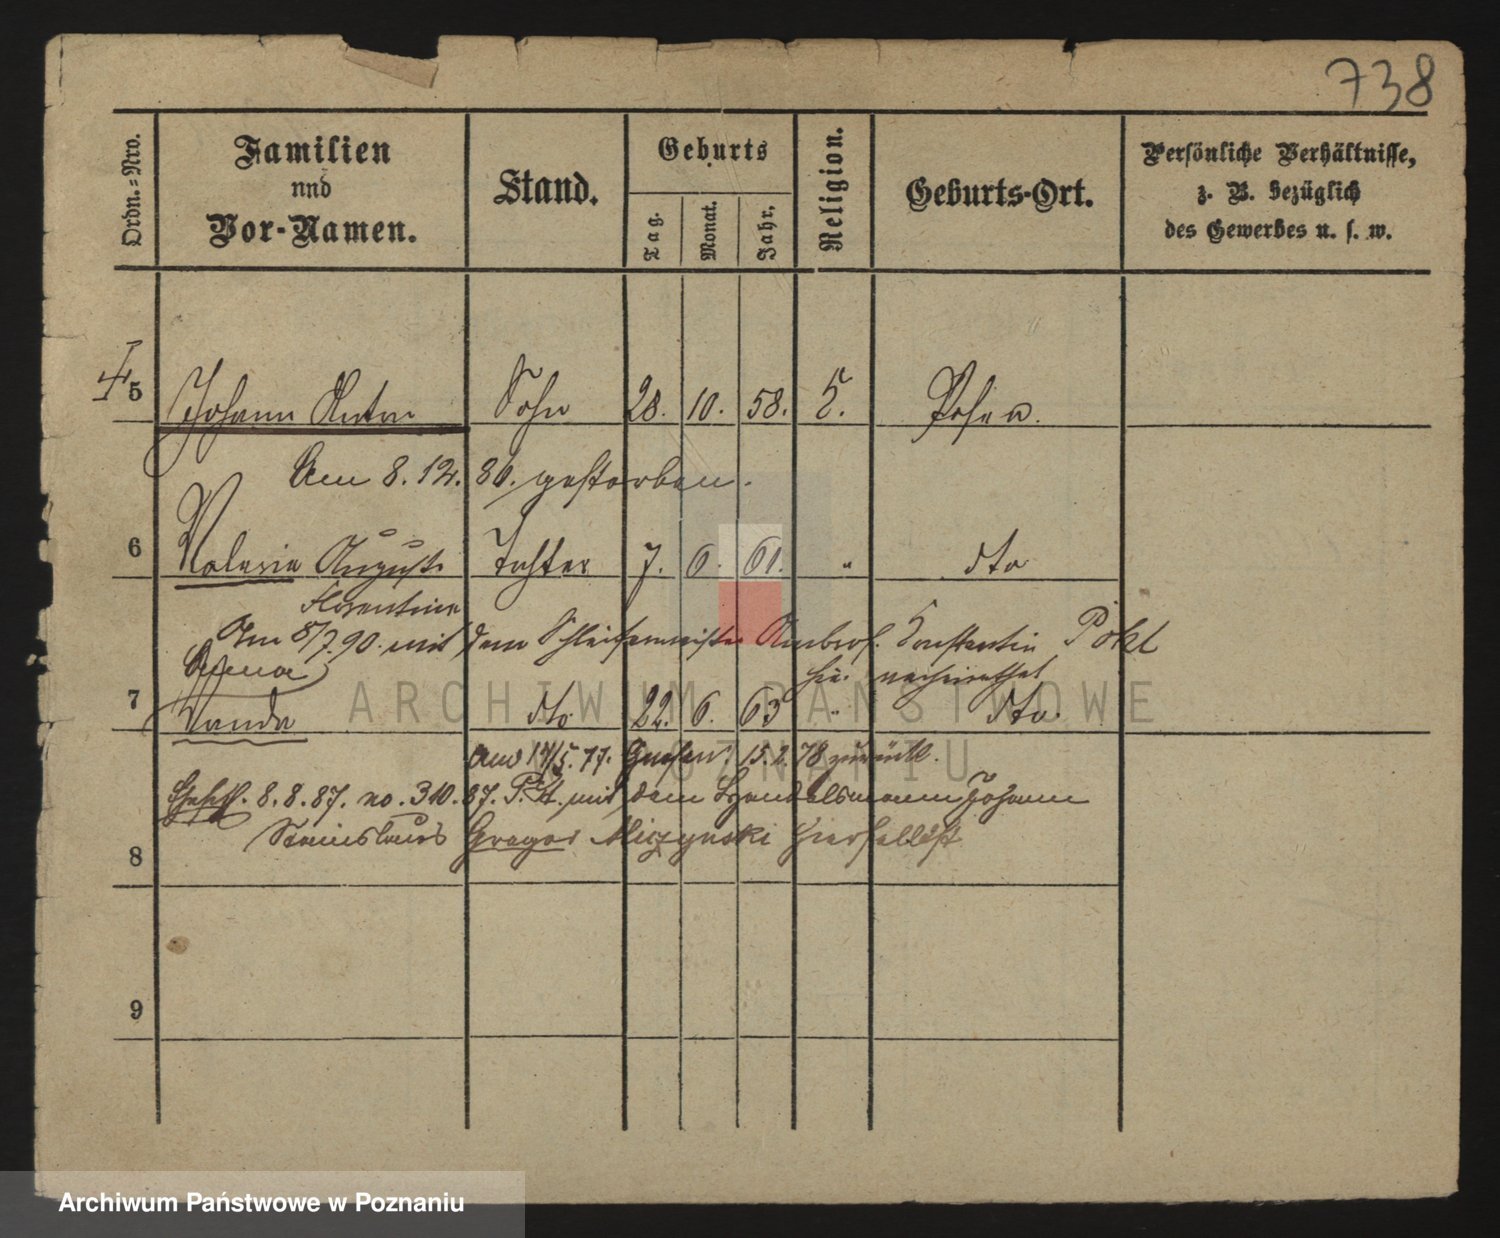 738
Ordn.-Nro.
Familien
und
Vor-Namen.
Stand.
Geburts
Tag.
Monat.
Jahr.
Religion.
Geburts-Ort.
Persönliche Verhältnisse,
z. B. bezüglich
des Gewerbes u. s. w.
5 Johann Anton Sohn 28. 10. 58. Posen.
Am 8. 12. 86. gestorben.
6 Valeria August. Tochter 7. 6. 61. " dto
Florentine
Am 8/7. 90. mit dem Ambros. Constantin Pokl
Anna hier verheirathet
7 Wanda dto. 22. 6. 63 " dto.
am 17/5. 77. Gnesen. 15. 2. 78 zurück.
8. 8. 87. no. 310. 87. P. St. mit dem Handelsmann Johann
Stanislaus Gregor Miczynski
8
9
ARCHIWUM PAŃSTWOWE
W POZNANIU
Archiwum Państwowe w Poznaniu